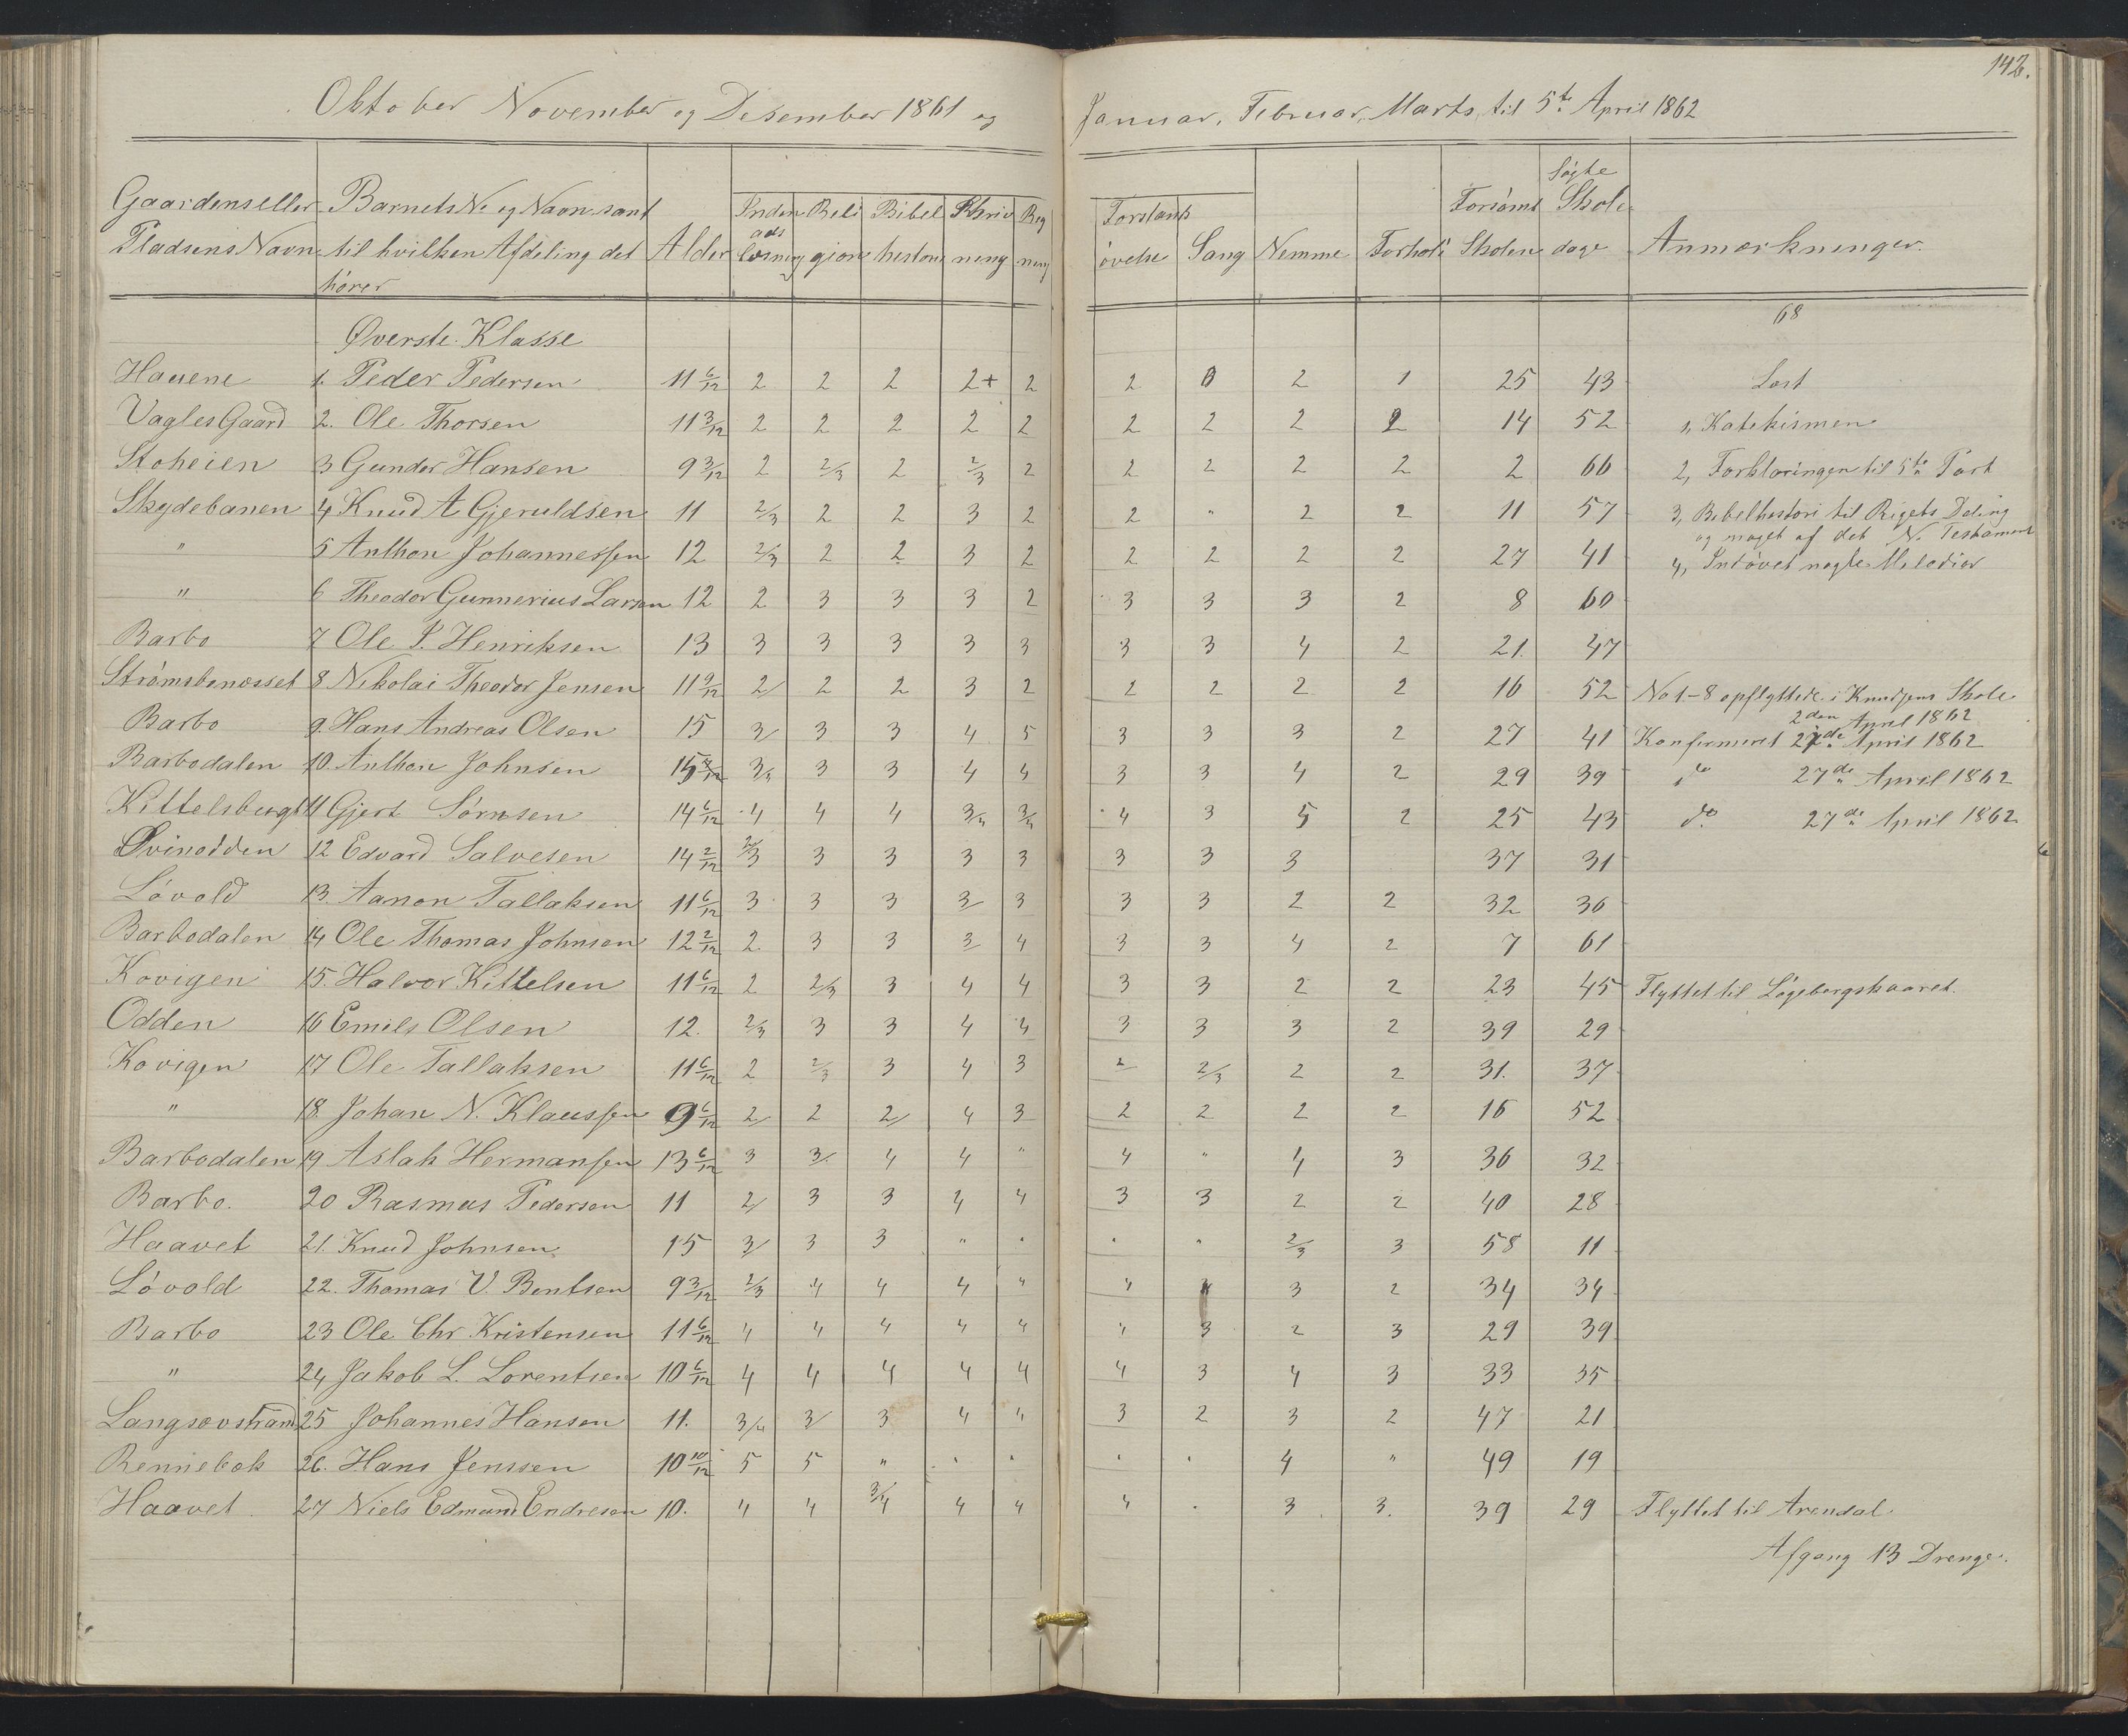 142.
Oktober November og Desember 1861 og Januar, Februar, Marts, til 5te April 1862
Gaardens eller Pladsens Navn | Barnets No og Navn samt til hvilken Afdeling det hører | Alder | Inden ads læsning | Religion | Bibel historie | Skrivning | Regning | Forstands øvelse | Sang | Nemme | Forhold | Forsømt Skolen | Søgte Skole dage | Anmærkninger.
Øverste Klasse | 68
Hauene 1. Peder Pedersen 11 6/12 2 2 2 2+ 2 2 0 2 1 25 43 Læst
Vagles Gaard 2. Ole Thorsen 11 3/12 2 2 2 2 2 2 2 2 2 14 52 1, Katekismen
Stoheien 3 Gunder Hansen 9 3/12 2 2/3 2 2/3 2 2 2 2 2 2 66 2, Forklaringen til 5te Part
Skydebanen 4 Knud A Gjeruldsen 11 2/3 2 2 3 2 2 " 2 2 11 57 3, Bibelhistori til Rigets Deling
og noget af det N. Testament
" 5 Anthon Johannessen 12 2/3 2 2 3 2 2 2 2 2 27 41 4, Indøvet nogle Melodier
" 6 Theodor Gunnerius Larsen 12 2 3 3 3 2 3 3 3 2 8 60
Barbo 7 Ole P. Henriksen 13 3 3 3 3 3 3 3 4 2 21. 47
Strømsbunesset 8 Nikolai Theodor Jensen 11 9/12 2/ 2 2 3 2 2 2 2 2 16 52 No 1-8 opflyttede i Knudsens Skole
2den April 1862
Barbo 9. Hans Andreas Olsen 15 3/ 3 3 4 5 3 3 3 2 27 41 Konfirmeret 27de April 1862
Barbodalen 10. Anthon Johnsen 15 3/4 3 3 4 4 3 3 4 2 29 39 do 27de April 1862
Kittelsbugt 11 Gjert Sørnsen 14 6/12 4 4 4 3/4 3/4 4 3 5 2 25 43 do 27de April 1862
Svinodden 12 Edvard Salvesen 14 2/12 2/3 3 3 3 3 3 3 3 37 31
Løvold 13. Aanon Tallaksen 11 6/12 3 3 3 3/ 3 3 3 2 2 32 36
Barbodalen 14 Ole Thomas Johnsen 12 2/12 2 3 3 3/ 4 3 3 4 2 7 61
Kovigen 15. Halvor Kittelsen 11 6/12 2 2/3 3 4 4 3 3 2 2 23 45 Flyttet til Løgebergskaaret.
Odden 16 Emils Olsen 12. 2/3 3 3 4 4 3 3 3 2 39 29
Kovigen 17 Ole Tallaksen 11 6/12 2 2/3 3 4 3 2 2/3 2 2 31. 37
" 18. Johan N. Klaussen 9 6/12 2/ 2 2/ 4 3 2 2 2 2 16 52
Barbodalen 19 Aslak Hermansen 13 6/12 3 3/ 4 4 " 4 " 4 3 36 32
Barbo. 20 Rasmus Pedersen 11 2/ 3 3 4 4 3 3 2 2 40 28
Haavet 21. Knud Johnsen 15 3/ 3 3 " " " " 2/3 3 58 11
Løvold 22. Thomas V. Bentsen 9 3/12 2/3 4 4 4 4 4 4 3 2 34 34
Barbo 23 Ole Chr Kristensen 11 6/12 4 4 4 4 4 4 3 2 3 29 39
" 24 Jakob L. Lorentsen 10 6/12 4 4 4 4 4 4 3 4 3 33 35
Langsævstrand 25 Johannes Hansen 11. 3/4 3/ 3 4 4 3 2 3 2 47 21
Rennebæk 26. Hans Jenssen 10 10/12 5 5 " " " " " 4 " 49 19
Haavet 27 Niels Edmund Endresen 10. 4 4 3/4 4 4 4 . 3 3. 39 29 Flyttet til Arendal
Afgang 13 Drenge.